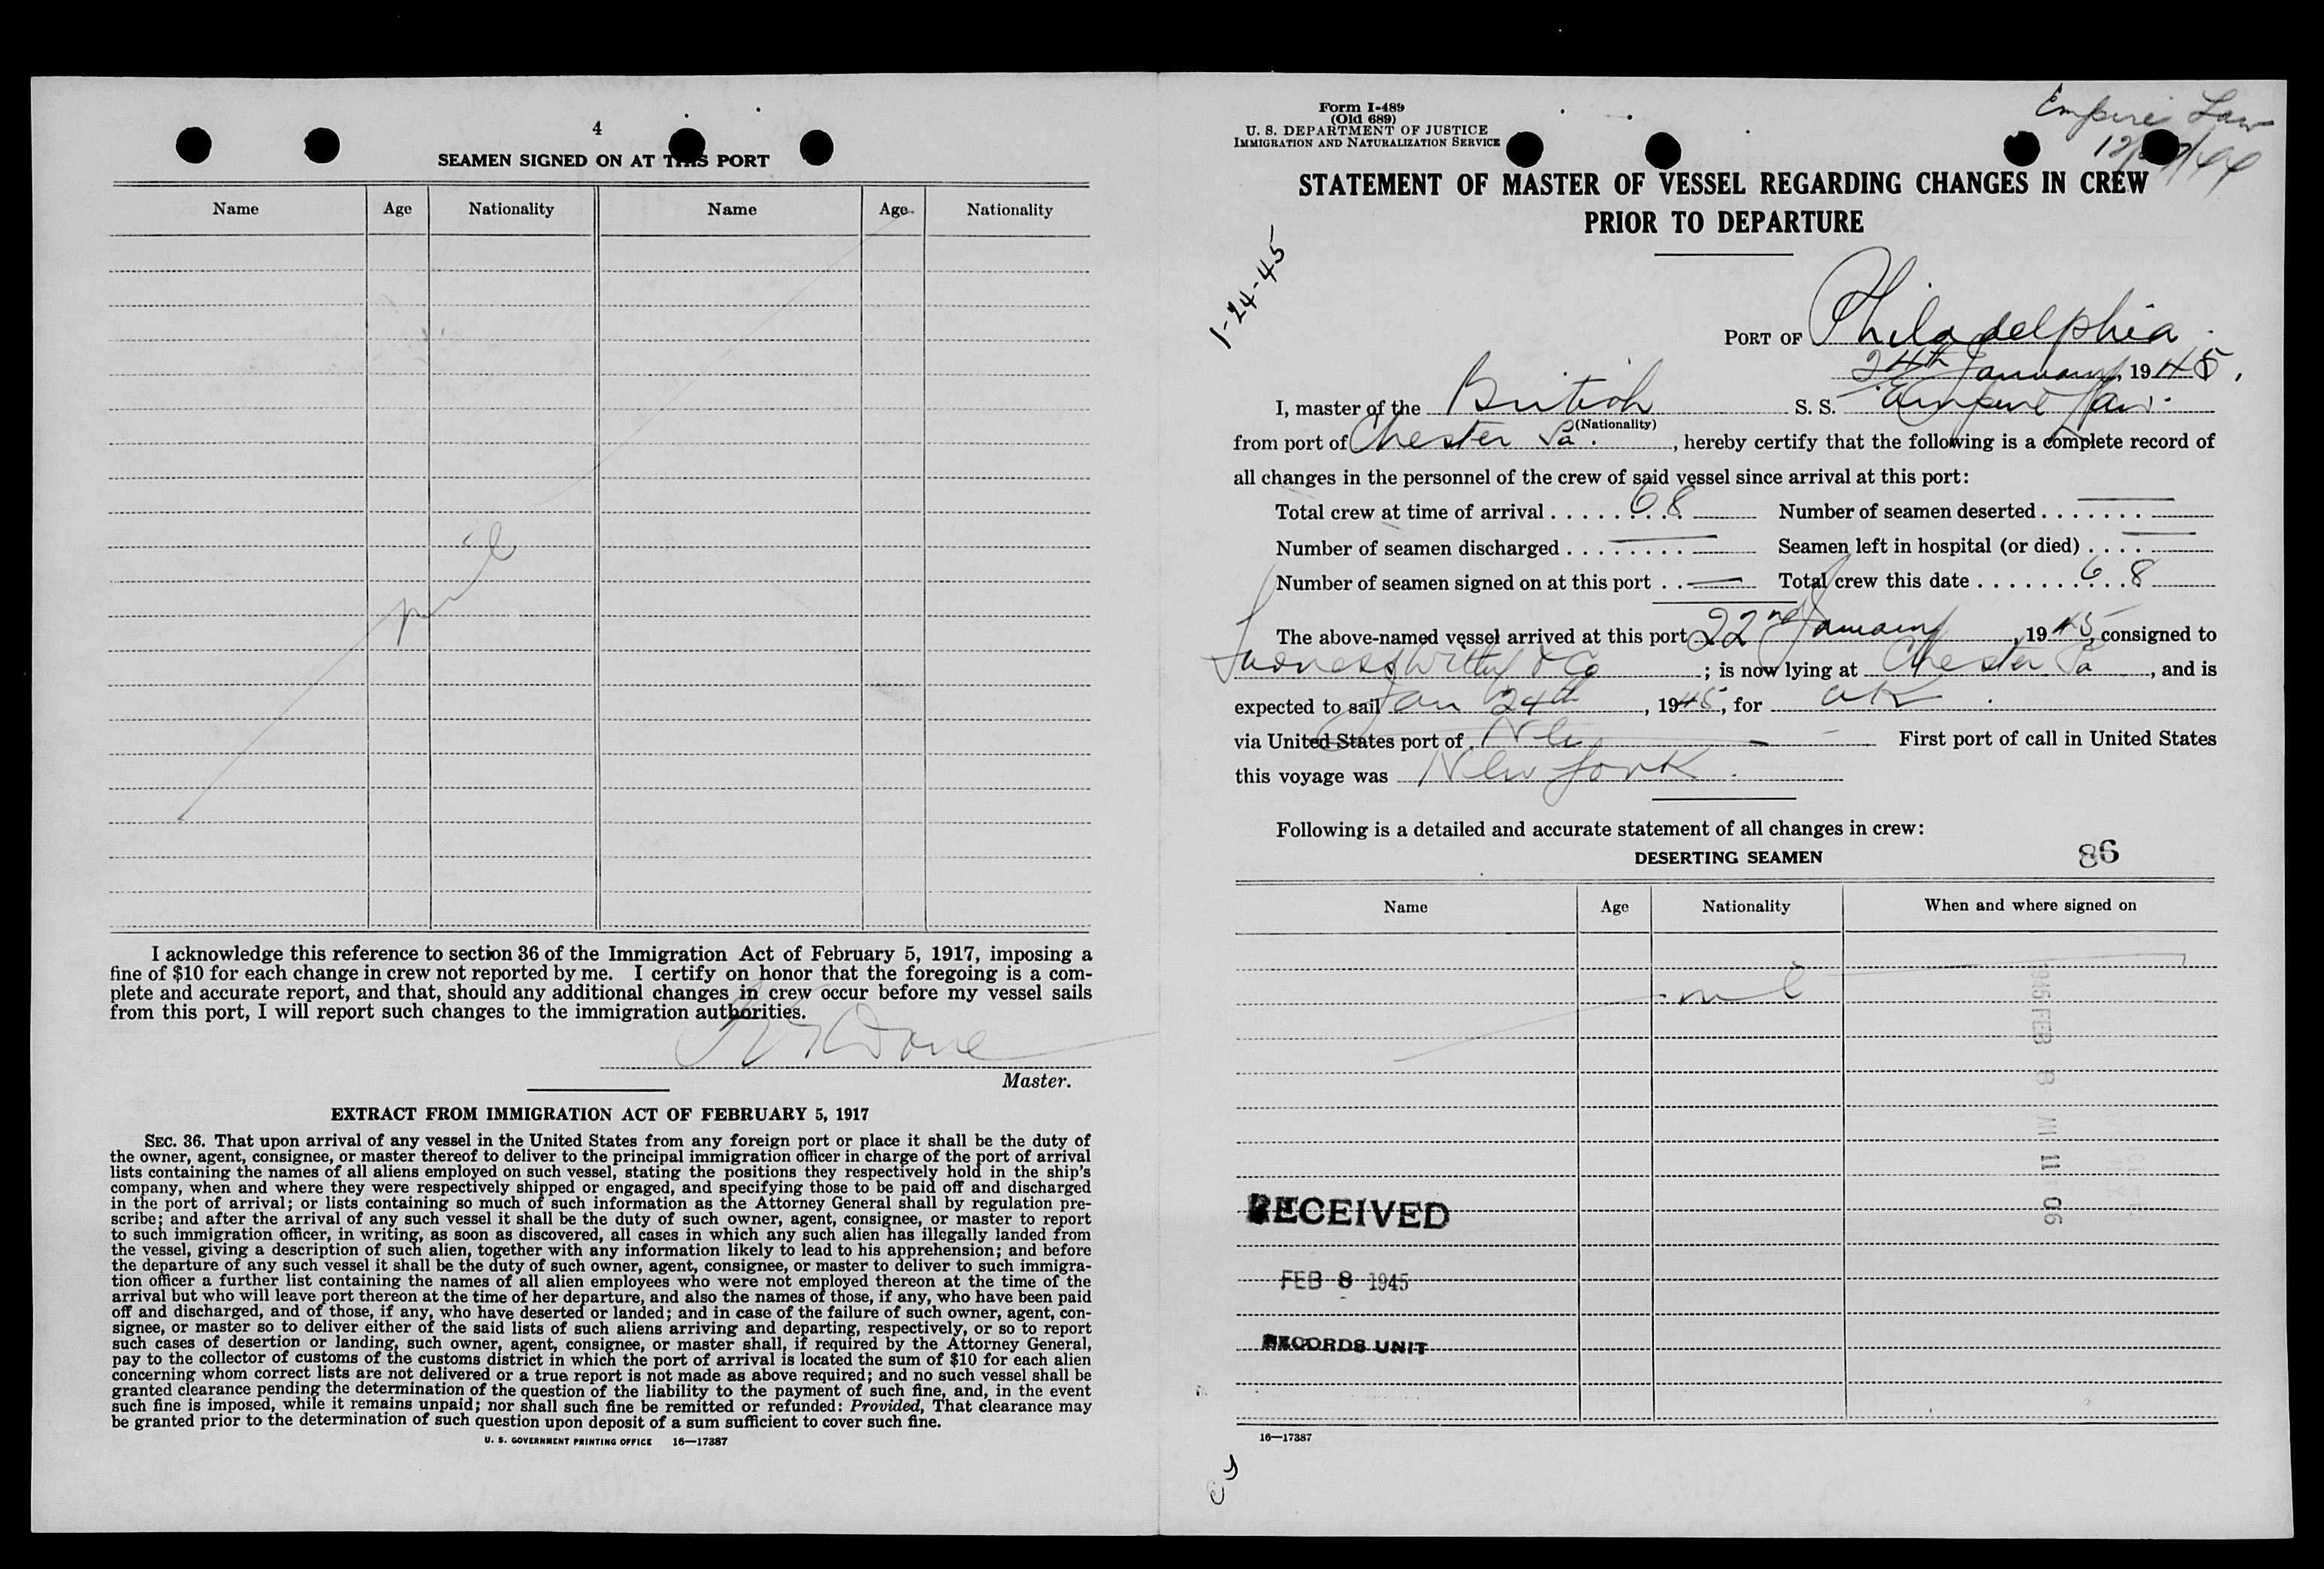 4
SEAMEN SIGNED ON AT THIS PORT
Name Age Nationality Name Age Nationality
nil
I acknowledge this reference to section 36 of the Immigration Act of February 5, 1917, imposing a
fine of $10 for each change in crew not reported by me. I certify on honor that the foregoing is a com-
plete and accurate report, and that, should any additional changes in crew occur before my vessel sails
from this port, I will report such changes to the immigration authorities.
Master.
EXTRACT FROM IMMIGRATION ACT OF FEBRUARY 5, 1917
SEC. 36. That upon arrival of any vessel in the United States from any foreign port or place it shall be the duty of
the owner, agent, consignee, or master thereof to deliver to the principal immigration officer in charge of the port of arrival
lists containing the names of all aliens employed on such vessel, stating the positions they respectively hold in the ship's
company, when and where they were respectively shipped or engaged, and specifying those to be paid off and discharged
in the port of arrival; or lists containing so much of such information as the Attorney General shall by regulation pre-
scribe; and after the arrival of any such vessel it shall be the duty of such owner, agent, consignee, or master to report
to such immigration officer, in writing, as soon as discovered, all cases in which any such alien has illegally landed from
the vessel, giving a description of such alien, together with any information likely to lead to his apprehension; and before
the departure of any such vessel it shall be the duty of such owner, agent, consignee, or master to deliver to such immigra-
tion officer a further list containing the names of all alien employees who were not employed thereon at the time of the
arrival but who will leave port thereon at the time of her departure, and also the names of those, if any, who have been paid
off and discharged, and of those, if any, who have deserted or landed; and in case of the failure of such owner, agent, con-
signee, or master so to deliver either of the said lists of such aliens arriving and departing, respectively, or so to report
such cases of desertion or landing, such owner, agent, consignee, or master shall, if required by the Attorney General,
pay to the collector of customs of the customs district in which the port of arrival is located the sum of $10 for each alien
concerning whom correct lists are not delivered or a true report is not made as above required; and no such vessel shall be
granted clearance pending the determination of the question of the liability to the payment of such fine, and, in the event
such fine is imposed, while it remains unpaid; nor shall such fine be remitted or refunded: Provided, That clearance may
be granted prior to the determination of such question upon deposit of a sum sufficient to cover such fine.
U. S. GOVERNMENT PRINTING OFFICE 16—17387
Form I-489
(Old 689)
U. S. DEPARTMENT OF JUSTICE
IMMIGRATION AND NATURALIZATION SERVICE
Empire Law
STATEMENT OF MASTER OF VESSEL REGARDING CHANGES IN CREW
PRIOR TO DEPARTURE
1-24-45
PORT OF Philadelphia
24th January, 1945,
I, master of the British S. S. Empire Law.
(Nationality)
from port of Chester Pa., hereby certify that the following is a complete record of
all changes in the personnel of the crew of said vessel since arrival at this port:
Total crew at time of arrival . . . . . . . . 68 Number of seamen deserted . . . . . . . —
Number of seamen discharged . . . . . . . . — Seamen left in hospital (or died) . . . . —
Number of seamen signed on at this port . . — Total crew this date . . . . . . . . . 68
The above-named vessel arrived at this port 22nd January, 1945, consigned to
Furness Withy & Co; is now lying at Chester Pa, and is
expected to sail Jan 24th, 1945, for UK.
via United States port of New — First port of call in United States
this voyage was New York.
Following is a detailed and accurate statement of all changes in crew:
DESERTING SEAMEN
86
Name Age Nationality When and where signed on
nil
1945 FEB 8 AM 11 06
RECEIVED
FEB 8 1945
RECORDS UNIT
16—17387